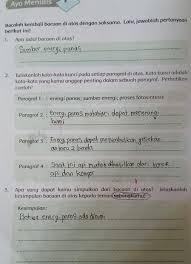 Ayo Menulis
Bacalah kembali bacaan di atas dengan saksama. Lalu, jawablah pertanyaan
berikut ini!
1. Apa judul bacaan di atas?
Sumber energi panas
2. Tuliskanlah kata-kata kunci pada setiap paragraf di atas. Kata kunci adalah
kata-kata yang kamu anggap penting dalam sebuah paragraf. Perhatikan
contoh!
Paragraf 1 : energi panas; sumber energi; proses fotosintesis
Paragraf 2 : Energi panas matahari dapat menerangi
bumi
Paragraf 3 : Energi panas dapat gesekan
antara 2 benda
Paragraf 4 : Saat ini api mudah dari korek
api dan kompor
3. Apa yang dapat kamu simpulkan dari bacaan di atas? Jelaskanlah
kesimpulan bacaan di atas kepada teman sebangkumu!
Kesimpulan:
energi panas ada di